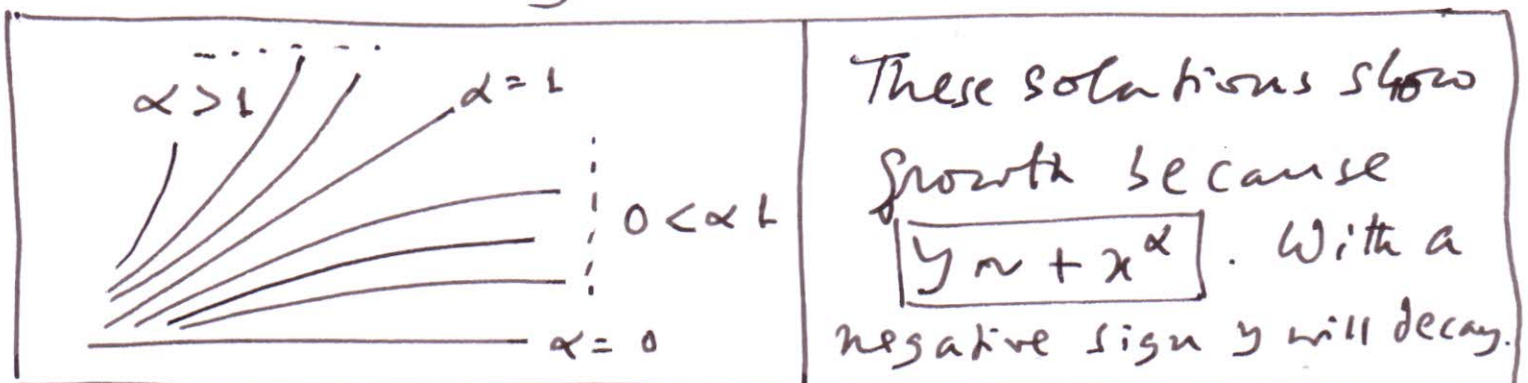 α > 1
α = 1
0 < α 1
α = 0
These solutions show
growth because
y ~ + x^α . With a
negative sign y will decay.